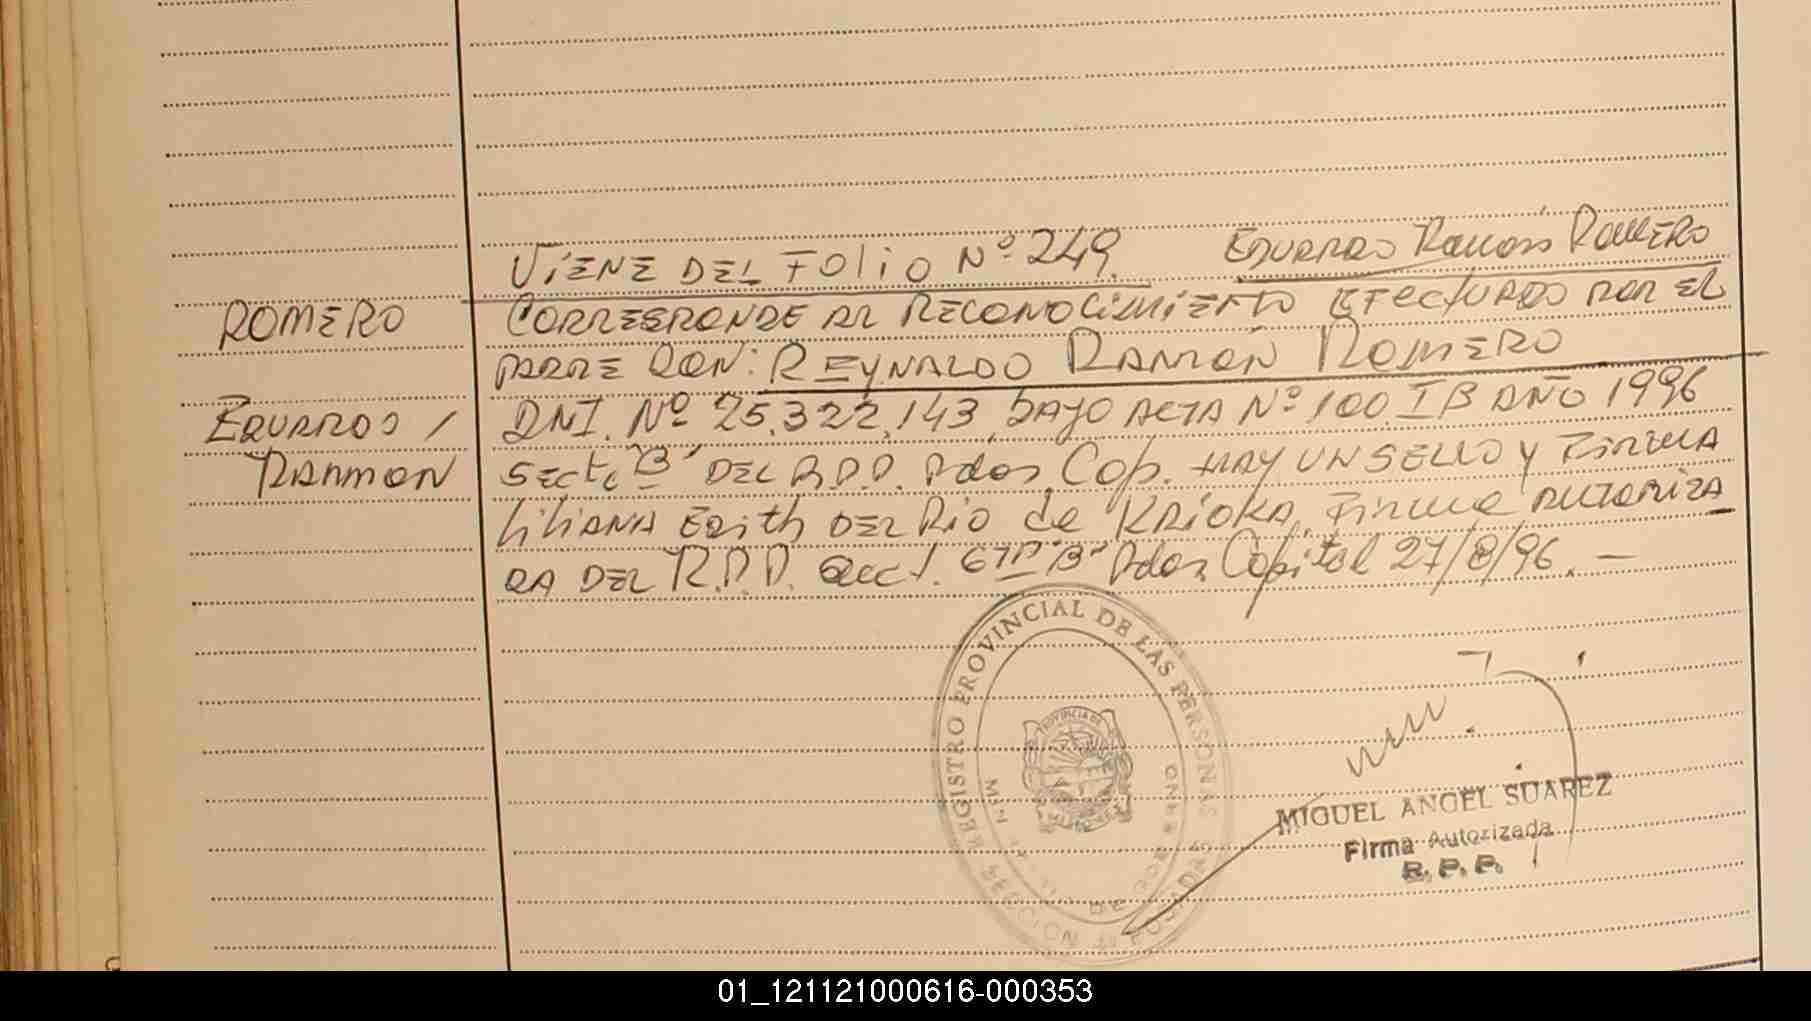 VIENE DEL FOLIO Nº 249. EDUARDO RAMON ROMERO
ROMERO
CORRESPONDE AL RECONOCIMIENTO EFECTUADO POR EL
PADRE DON: REYNALDO RAMON ROMERO
EDUARDO /
RAMON
DNI. Nº 25.322.143, BAJO ACTA Nº 100 IB AÑO 1996
SECC. "B" DEL R.P.P. Pdas, Cap. HAY UN SELLO Y FIRMA
LILIANA Edith DEL Rio de KRIOKA, Firma AUTORIZA
DA DEL R.P.P. Secc. 6TA "B" Pdas, Capital 27/8/96. —
REGISTRO PROVINCIAL DE LAS PERSONAS
PROVINCIA DE
MIN DE GOBIERNO
SECCION POSADAS
MIGUEL ANGEL SUAREZ
Firma Autorizada
R. P. P.
01_121121000616-000353